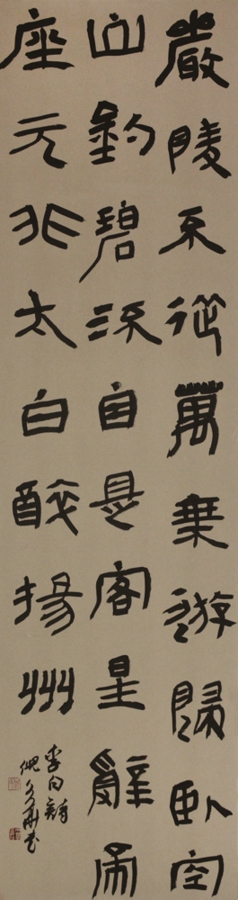 嚴陵不從萬乘遊歸臥空
山釣碧流自是客星辭帝
座元非太白醉揚州
李白詩